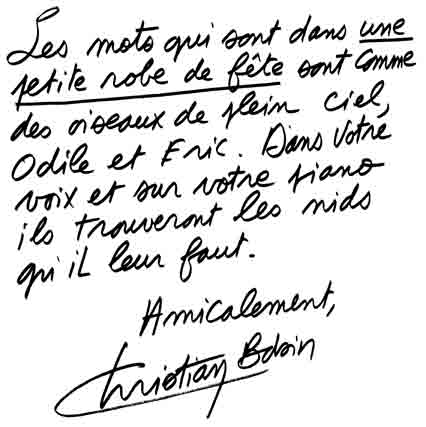 Les mots qui sont dans une
petite robe de fête sont comme
des oiseaux de plein ciel,
Odile et Eric. Dans votre
voix et sur votre piano
ils trouveront les nids
qu'il leur faut.
Amicalement,
Christian Bobin